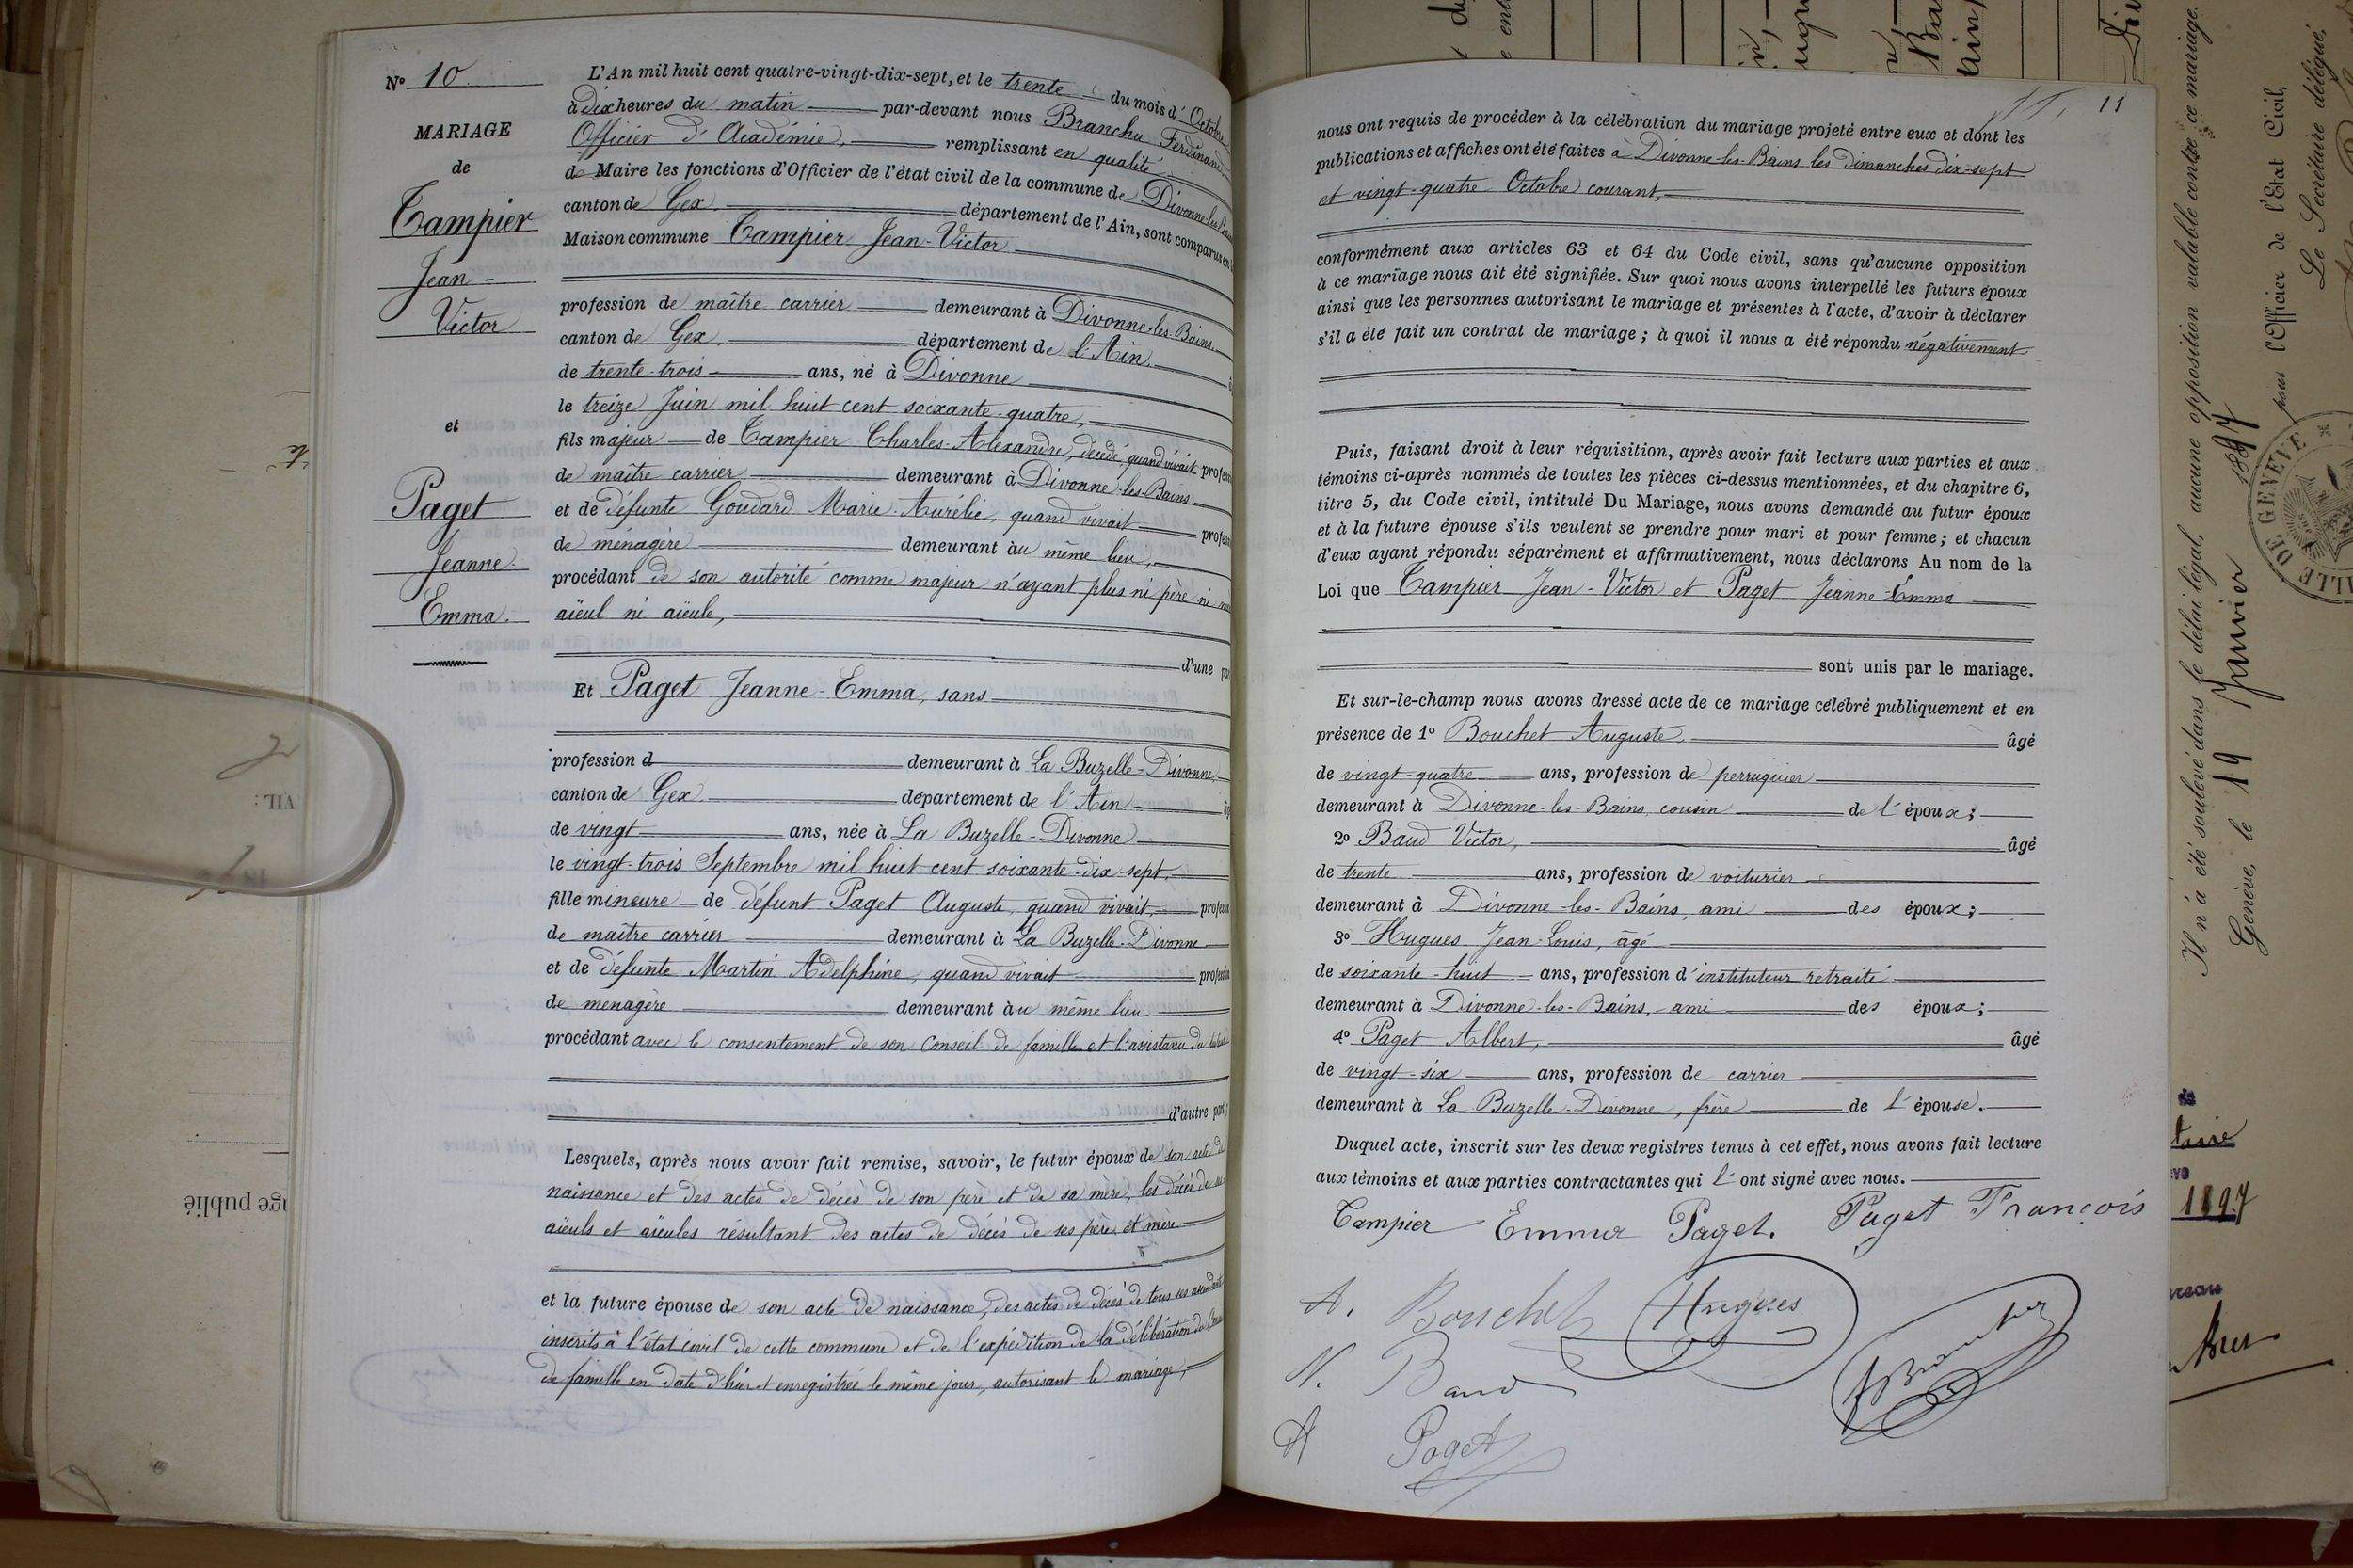 Nº 10
MARIAGE
de
Campier
Jean-
Victor
et
Paget
Jeanne-
Emma.
L'An mil huit cent quatre-vingt-dix-sept, et le trente du mois d'Octobre
à dix heures du matin par-devant nous Branchu Ferdinand
Officier d'Académie, remplissant en qualité
de Maire les fonctions d'Officier de l'état civil de la commune de Divonne-les-Bains
canton de Gex département de l'Ain, sont comparus en
Maison commune Campier Jean-Victor
profession de maître carrier demeurant à Divonne-les-Bains.
canton de Gex, département de l'Ain,
de trente-trois ans, né à Divonne
le treize Juin mil huit cent soixante-quatre,
fils majeur de Campier Charles-Alexandre, décédé, quand vivait profession
de maître carrier demeurant à Divonne-les-Bains
et de défunte Goudard Marie-Aurélie, quand vivait profession
de ménagère demeurant au même lieu,
procédant de son autorité comme majeur n'ayant plus ni père ni mère
aïeul ni aïeule,
d'une part
Et Paget Jeanne-Emma, sans
profession d demeurant à La Buzelle-Divonne
canton de Gex département de l'Ain
de vingt ans, née à La Buzelle-Divonne
le vingt-trois Septembre mil huit cent soixante-dix-sept,
fille mineure de défunt Paget Auguste, quand vivait, profession
de maître carrier demeurant à La Buzelle-Divonne
et de défunte Martin Adelphine, quand vivait profession
de ménagère demeurant au même lieu
procédant avec le consentement de son Conseil de famille et l'assistance du tuteur
d'autre part;
Lesquels, après nous avoir fait remise, savoir, le futur époux de son acte de
naissance et des actes de décès de son père et de sa mère, les décès de ses
aïeuls et aïeules résultant des actes de décès de ses père et mère
et la future épouse de son acte de naissance, des actes de décès de tous ses ascendants
inscrits à l'état civil de cette commune et de l'expédition de la délibération du Conseil
de famille en date d'hier et enregistrée le même jour, autorisant le mariage,
11
nous ont requis de procéder à la célébration du mariage projeté entre eux et dont les
publications et affiches ont été faites à Divonne-les-Bains les dimanches dix-sept
et vingt-quatre Octobre courant,
conformément aux articles 63 et 64 du Code civil, sans qu'aucune opposition
à ce mariage nous ait été signifiée. Sur quoi nous avons interpellé les futurs époux
ainsi que les personnes autorisant le mariage et présentes à l'acte, d'avoir à déclarer
s'il a été fait un contrat de mariage; à quoi il nous a été répondu négativement
Puis, faisant droit à leur réquisition, après avoir fait lecture aux parties et aux
témoins ci-après nommés de toutes les pièces ci-dessus mentionnées, et du chapitre 6,
titre 5, du Code civil, intitulé Du Mariage, nous avons demandé au futur époux
et à la future épouse s'ils veulent se prendre pour mari et pour femme; et chacun
d'eux ayant répondu séparément et affirmativement, nous déclarons Au nom de la
Loi que Campier Jean-Victor et Paget Jeanne-Emma
sont unis par le mariage.
Et sur-le-champ nous avons dressé acte de ce mariage célébré publiquement et en
présence de 1º Bouchet Auguste, âgé
de vingt-quatre ans, profession de perruquier
demeurant à Divonne-les-Bains, cousin de l'époux;
2º Baud Victor, âgé
de trente ans, profession de voiturier
demeurant à Divonne-les-Bains, ami des époux;
3º Hugues Jean-Louis, âgé
de soixante-huit ans, profession d'instituteur retraité
demeurant à Divonne-les-Bains, ami des époux;
4º Paget Albert, âgé
de vingt-six ans, profession de carrier
demeurant à La Buzelle-Divonne, frère de l'épouse.
Duquel acte, inscrit sur les deux registres tenus à cet effet, nous avons fait lecture
aux témoins et aux parties contractantes qui l'ont signé avec nous.
Campier Emma Paget. Paget François
A. Bouchet Hugues
V. Baud FBranchu
A Paget
Il n'a été soulevé dans le délai légal, aucune opposition valable contre ce mariage.
Genève, le 19 Janvier 1897
pour l'Officier de l'Etat Civil,
Le Secrétaire délégué,
VILLE DE GENÈVE
1897